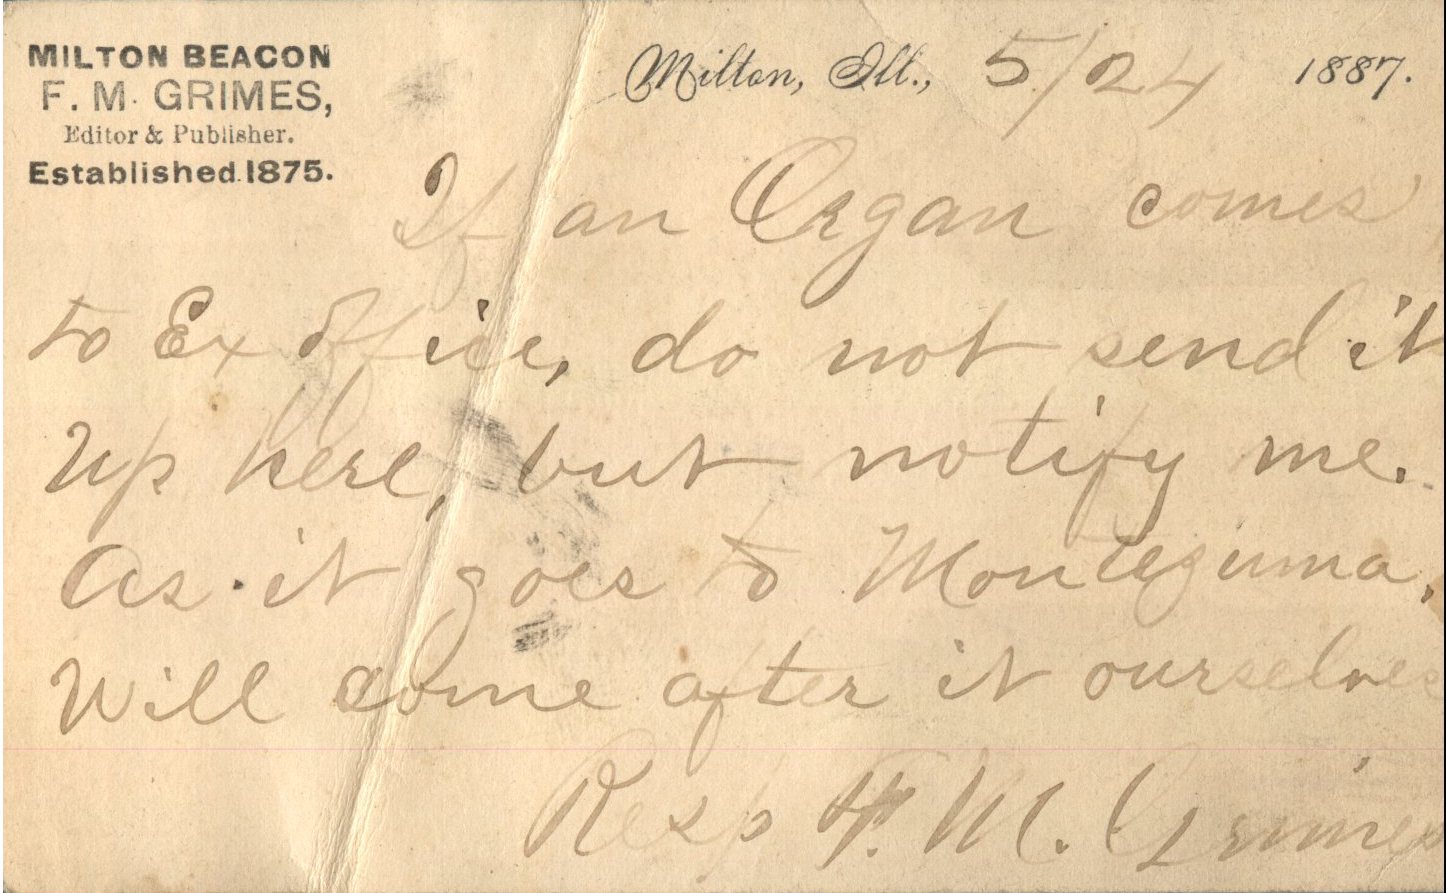 MILTON BEACON
F. M. GRIMES,
Editor & Publisher.
Established 1875.
Milton, Ill., 5/24 1887.
If an Organ comes
to Ex office, do not send it
up here, but notify me.
As it goes to Montezuma,
Will come after it ourselves
Resp F. M. Grimes